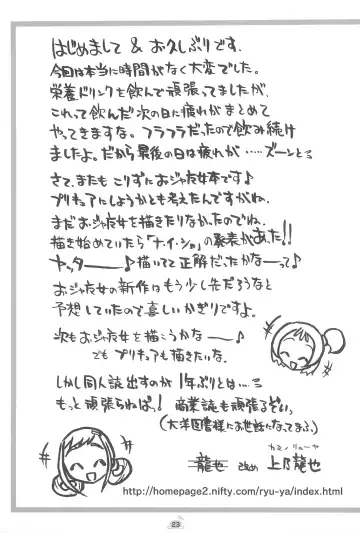 はじめまして & お久しぶりです.
今回は本当に時間がなく大変でした。
栄養ドリンクを飲んで頑張ってましたが、
これって飲んだ次の日に疲れがまとめて
やってきますな。フラフラだったので飲み続け
ましたよ。だから最後の日は疲れが……ズーンと
さて、またもこりずにおジャ女本です♪
プリキュアにしようかとも考えたんですがね、
まだおジャ女を描きたりなかったのでね、
描き始めていたら「ナ・イ・ショ」の発表があった!!
ヤッター――♪描いてて正解だったかなーって♪
おジャ女の新作はもう少し先だろうなと
予想していたので喜しいかぎりですよ。
次もおジャ女を描こうかなー――♪
でもプリキュアも描きたいな。
しかし同人誌出すのが1年ぶりとは…
もっと頑張らねばっ! 商業誌も頑張るぞい。
(大洋図書様にお世話になってまふ。)
カミノ リューヤ
龍也 改め 上乃龍也
http://homepage2.nifty.com/ryu-ya/index.html
23